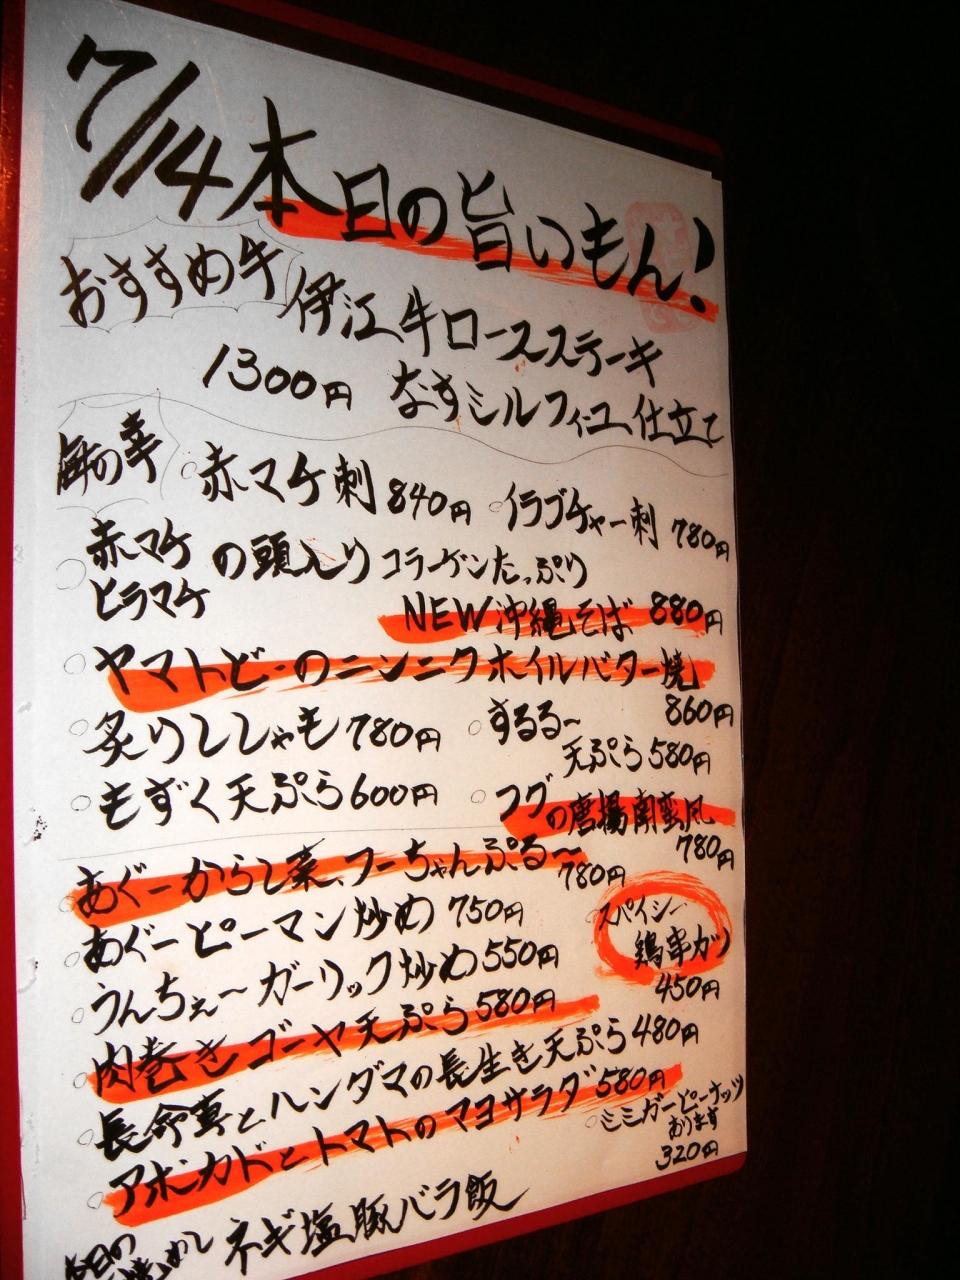 7/14 本日の旨いもん!
おすすめ牛 伊江牛ロースステーキ
1300円 なすミルフィーユ仕立て
海の幸
赤マチ刺 840円 イラブチャー刺 780円
赤マチ
ヒラマチ の頭入り コラーゲンたっぷり
NEW沖縄そば 880円
ヤマトビーのニンニクホイルバター焼
860円
炙りししゃも 780円 するる〜
天ぷら 580円
もずく天ぷら 600円 フグの唐揚南蛮風
780円
あぐーからし菜、フーちゃんぷる〜
780円
あぐーピーマン炒め 750円
スパイシー
鶏串カツ
450円
うんちぇ〜ガーリック炒め 550円
肉巻きゴーヤ天ぷら 580円
長命草とハンダマの長生き天ぷら 480円
アボカドとトマトのマヨサラダ 580円
ミミガーピーナッツ
おります
320円
本日の
ネギ塩豚バラ飯